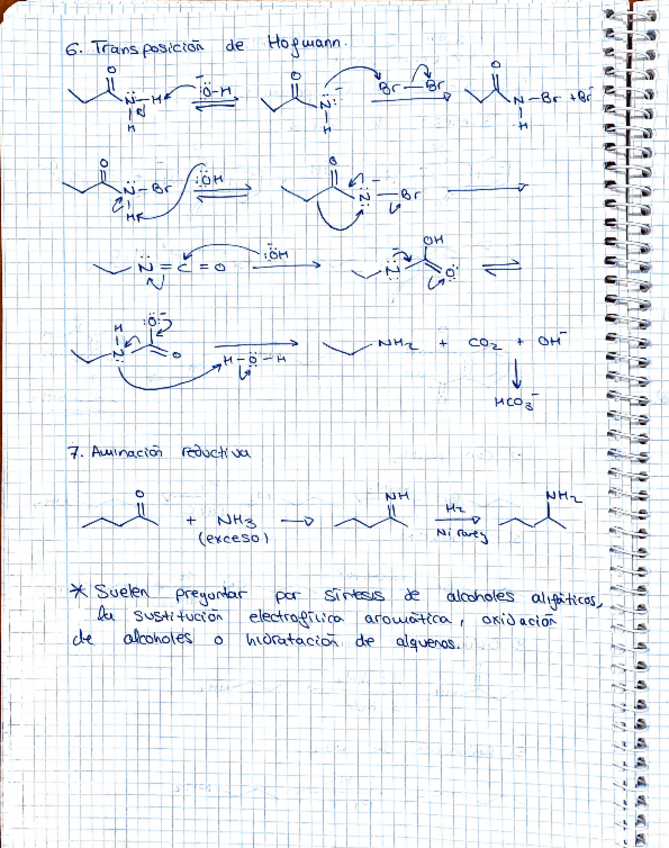 6. Transposición de Hofmann.
O N-H H :Ö-H O N: H Br-Br O N-Br + Br⁻ H
O N-Br H :ÖH O N-Br
N=C=O :ÖH OH N O
H :O: N O H-O-H NH2 + CO2 + OH⁻
HCO3⁻
7. Aminación reductiva
O + NH3 (exceso) NH H2 Ni Raney NH2
* Suelen preguntar por síntesis de alcoholes alifáticos,
la sustitución electrofílica aromática, oxidación
de alcoholes o hidratación de alquenos.